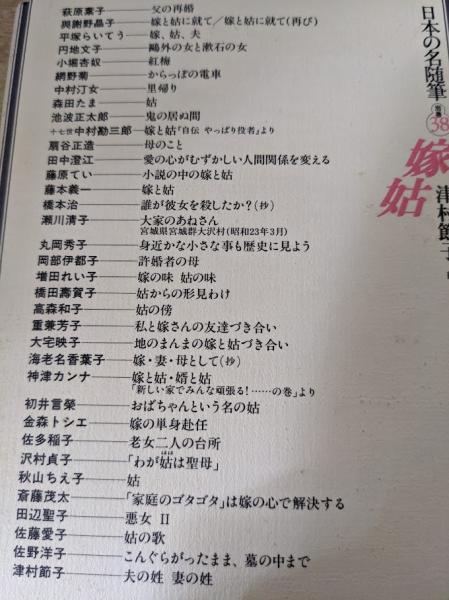 日本の名随筆
別巻
38
嫁姑
津村節子
萩原葉子——父の再婚
與謝野晶子——嫁と姑に就て／嫁と姑に就て(再び)
平塚らいてう——嫁、姑、夫
円地文子——鷗外の女と漱石の女
小堀杏奴——紅梅
網野菊——からっぽの電車
中村汀女——里帰り
森田たま——姑
池波正太郎——鬼の居ぬ間
十七世中村勘三郎——嫁と姑『自伝 やっぱり役者』より
扇谷正造——母のこと
田中澄江——愛の心がむずかしい人間関係を変える
藤原てい——小説の中の嫁と姑
藤本義一——嫁と姑
橋本治——誰が彼女を殺したか？(抄)
瀬川清子——大家のあねさん
宮城県宮城群大沢村(昭和23年3月)
丸岡秀子——身近かな小さな事も歴史に見よう
岡部伊都子——許婚者の母
増田れい子——嫁の味 姑の味
橋田壽賀子——姑からの形見わけ
高森和子——姑の傍
重兼芳子——私と嫁さんの友達づき合い
大宅映子——地のまんまの嫁と姑づき合い
海老名香葉子——嫁・妻・母として(抄)
神津カンナ——嫁と姑・婿と姑
「新しい家でみんな頑張る！……の巻」より
初井言榮——おばちゃんという名の姑
金森トシエ——嫁の単身赴任
佐多稲子——老女二人の台所
沢村貞子——「わが姑は聖母」
秋山ちえ子——姑
斎藤茂太——「家庭のゴタゴタ」は嫁の心で解決する
田辺聖子——悪女 II
佐藤愛子——姑の歌
佐野洋子——こんぐらがったまま、墓の中まで
津村節子——夫の姓 妻の姓